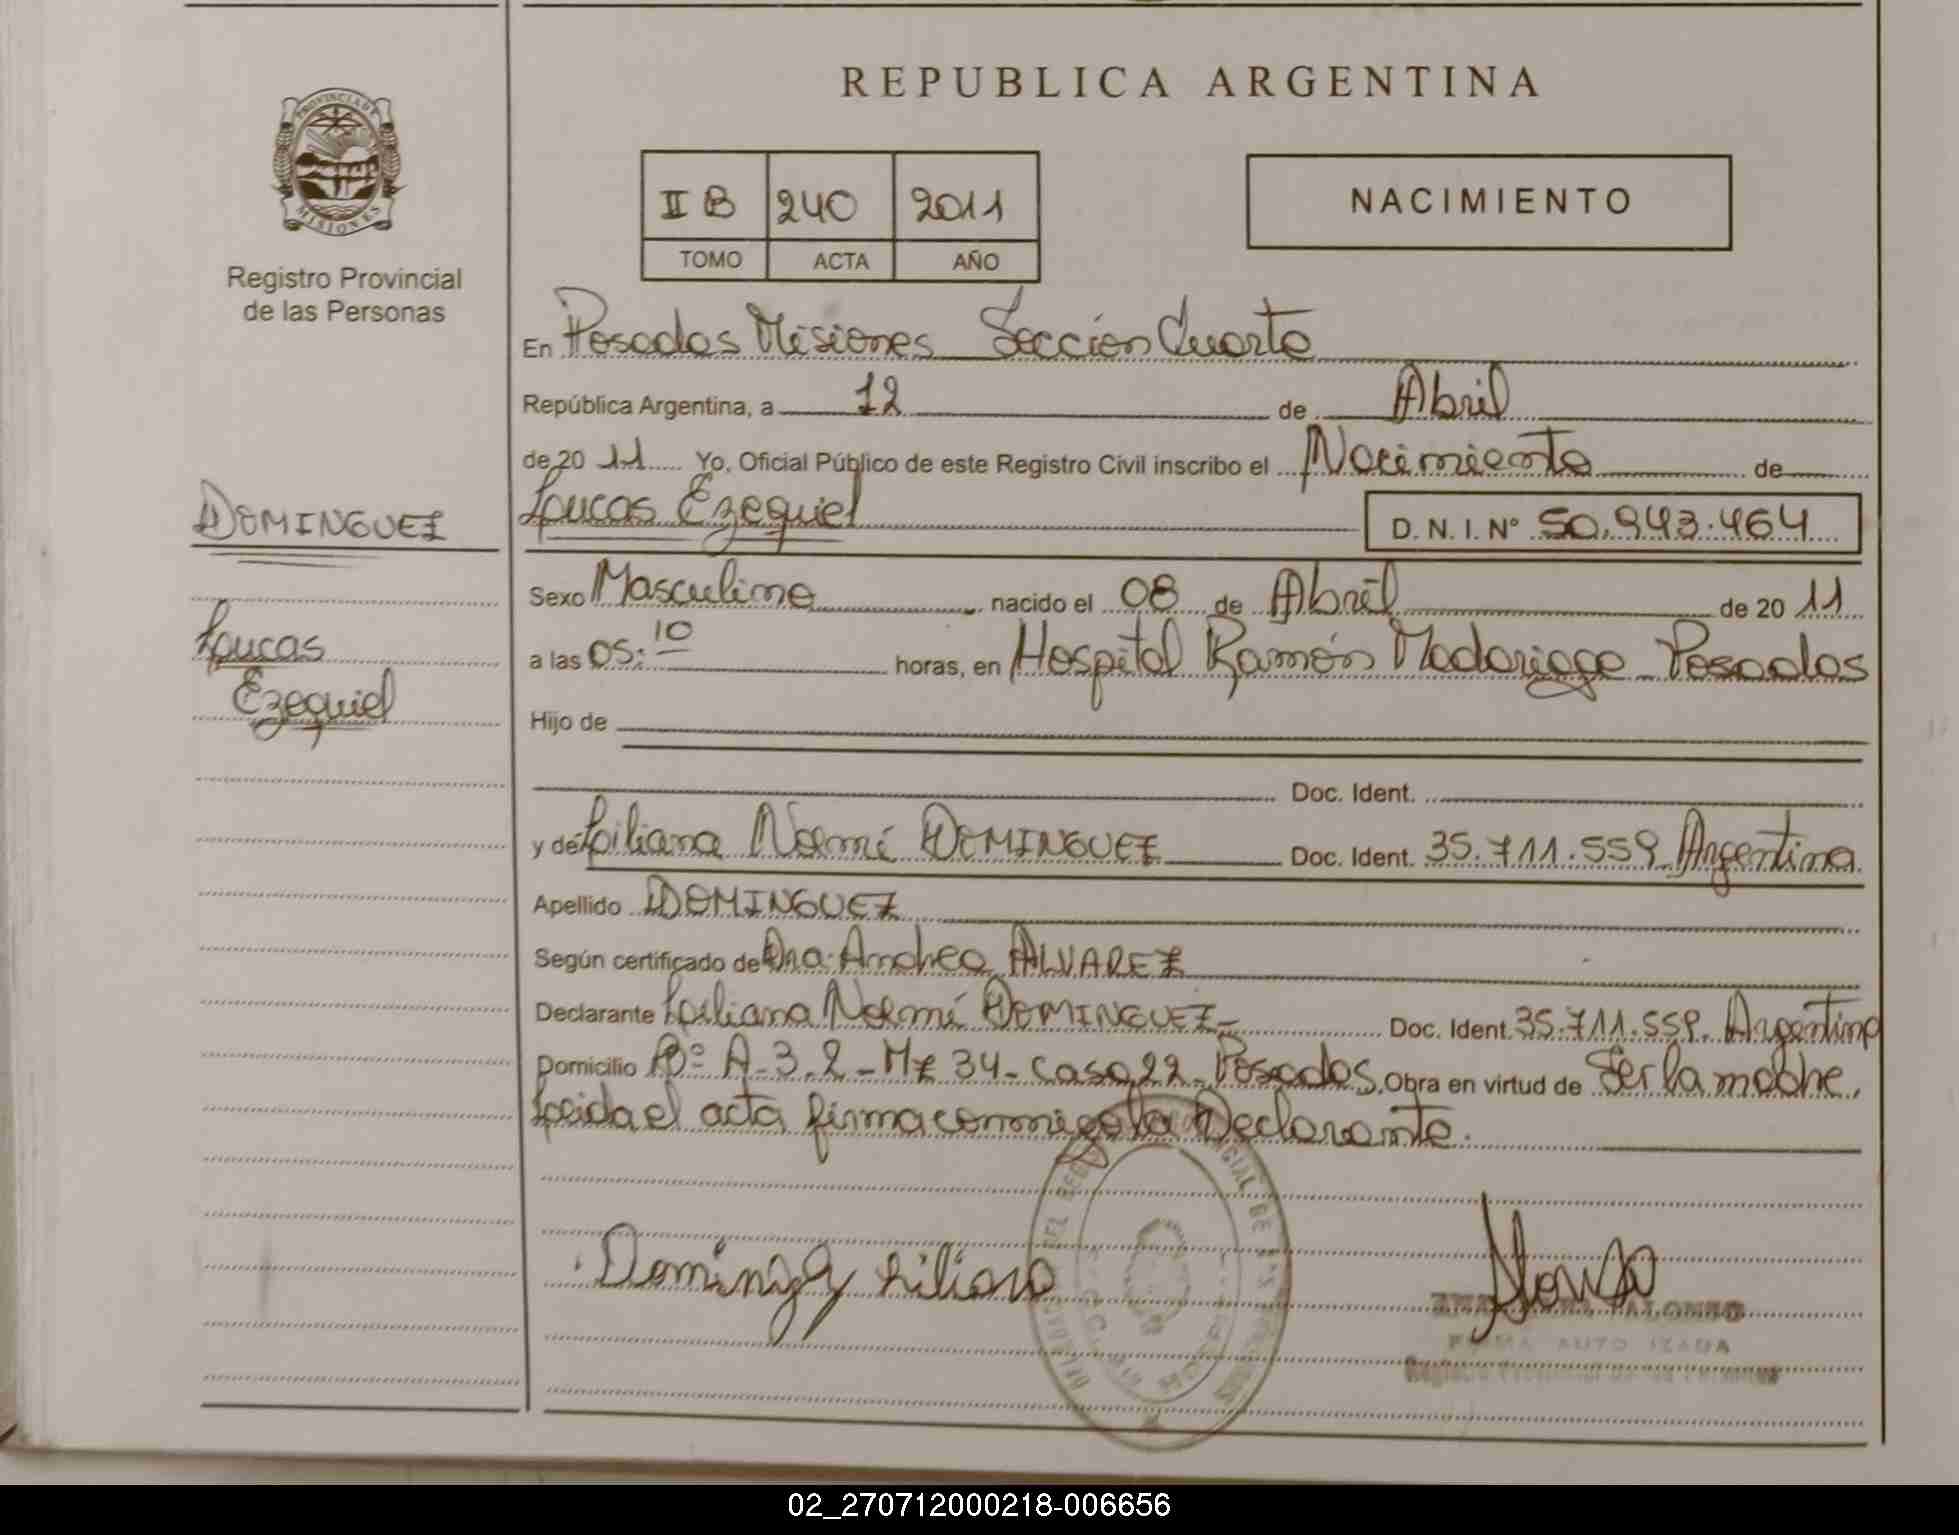 REPUBLICA ARGENTINA
PROVINCIA DE
MISIONES
Registro Provincial
de las Personas
II B 240 2011
TOMO ACTA AÑO
NACIMIENTO
En Posadas Misiones Sección Cuarta
República Argentina, a 12 de Abril
de 20 11 Yo, Oficial Público de este Registro Civil inscribo el Nacimiento de
DOMINGUEZ
Loucas Ezequiel
D. N. I. N° 50.943.464
Sexo Masculino nacido el 08 de Abril de 20 11
Loucas
Ezequiel
a las 05:10 horas, en Hospital Ramón Madariaga Posadas
Hijo de
Doc. Ident.
y de Liliana Noemí DOMINGUEZ Doc. Ident. 35.711.559 Argentina
Apellido DOMINGUEZ
Según certificado de Dra. Andrea ALVAREZ
Declarante Liliana Noemí DOMINGUEZ Doc. Ident. 35.711.559. Argentina
Domicilio B° A-3.2-Mz 34-casa 22-Posadas. Obra en virtud de Ser la madre,
Leida el acta firma conmigo la Declarante.
Liliana
ALONSO
Registro Provincial de las Personas
02_270712000218-006656